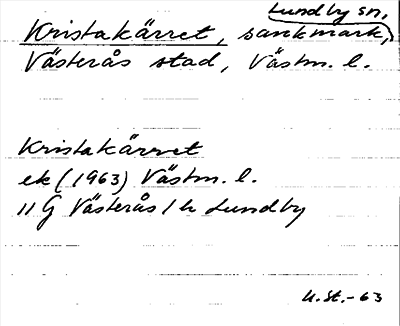 Lundby sn,
Kristakärret, sankmark,
Västerås stad, Västm. l.
Kristakärret
ek (1963) Västm. l.
11 G Västerås / h Lundby
U. St. - 63